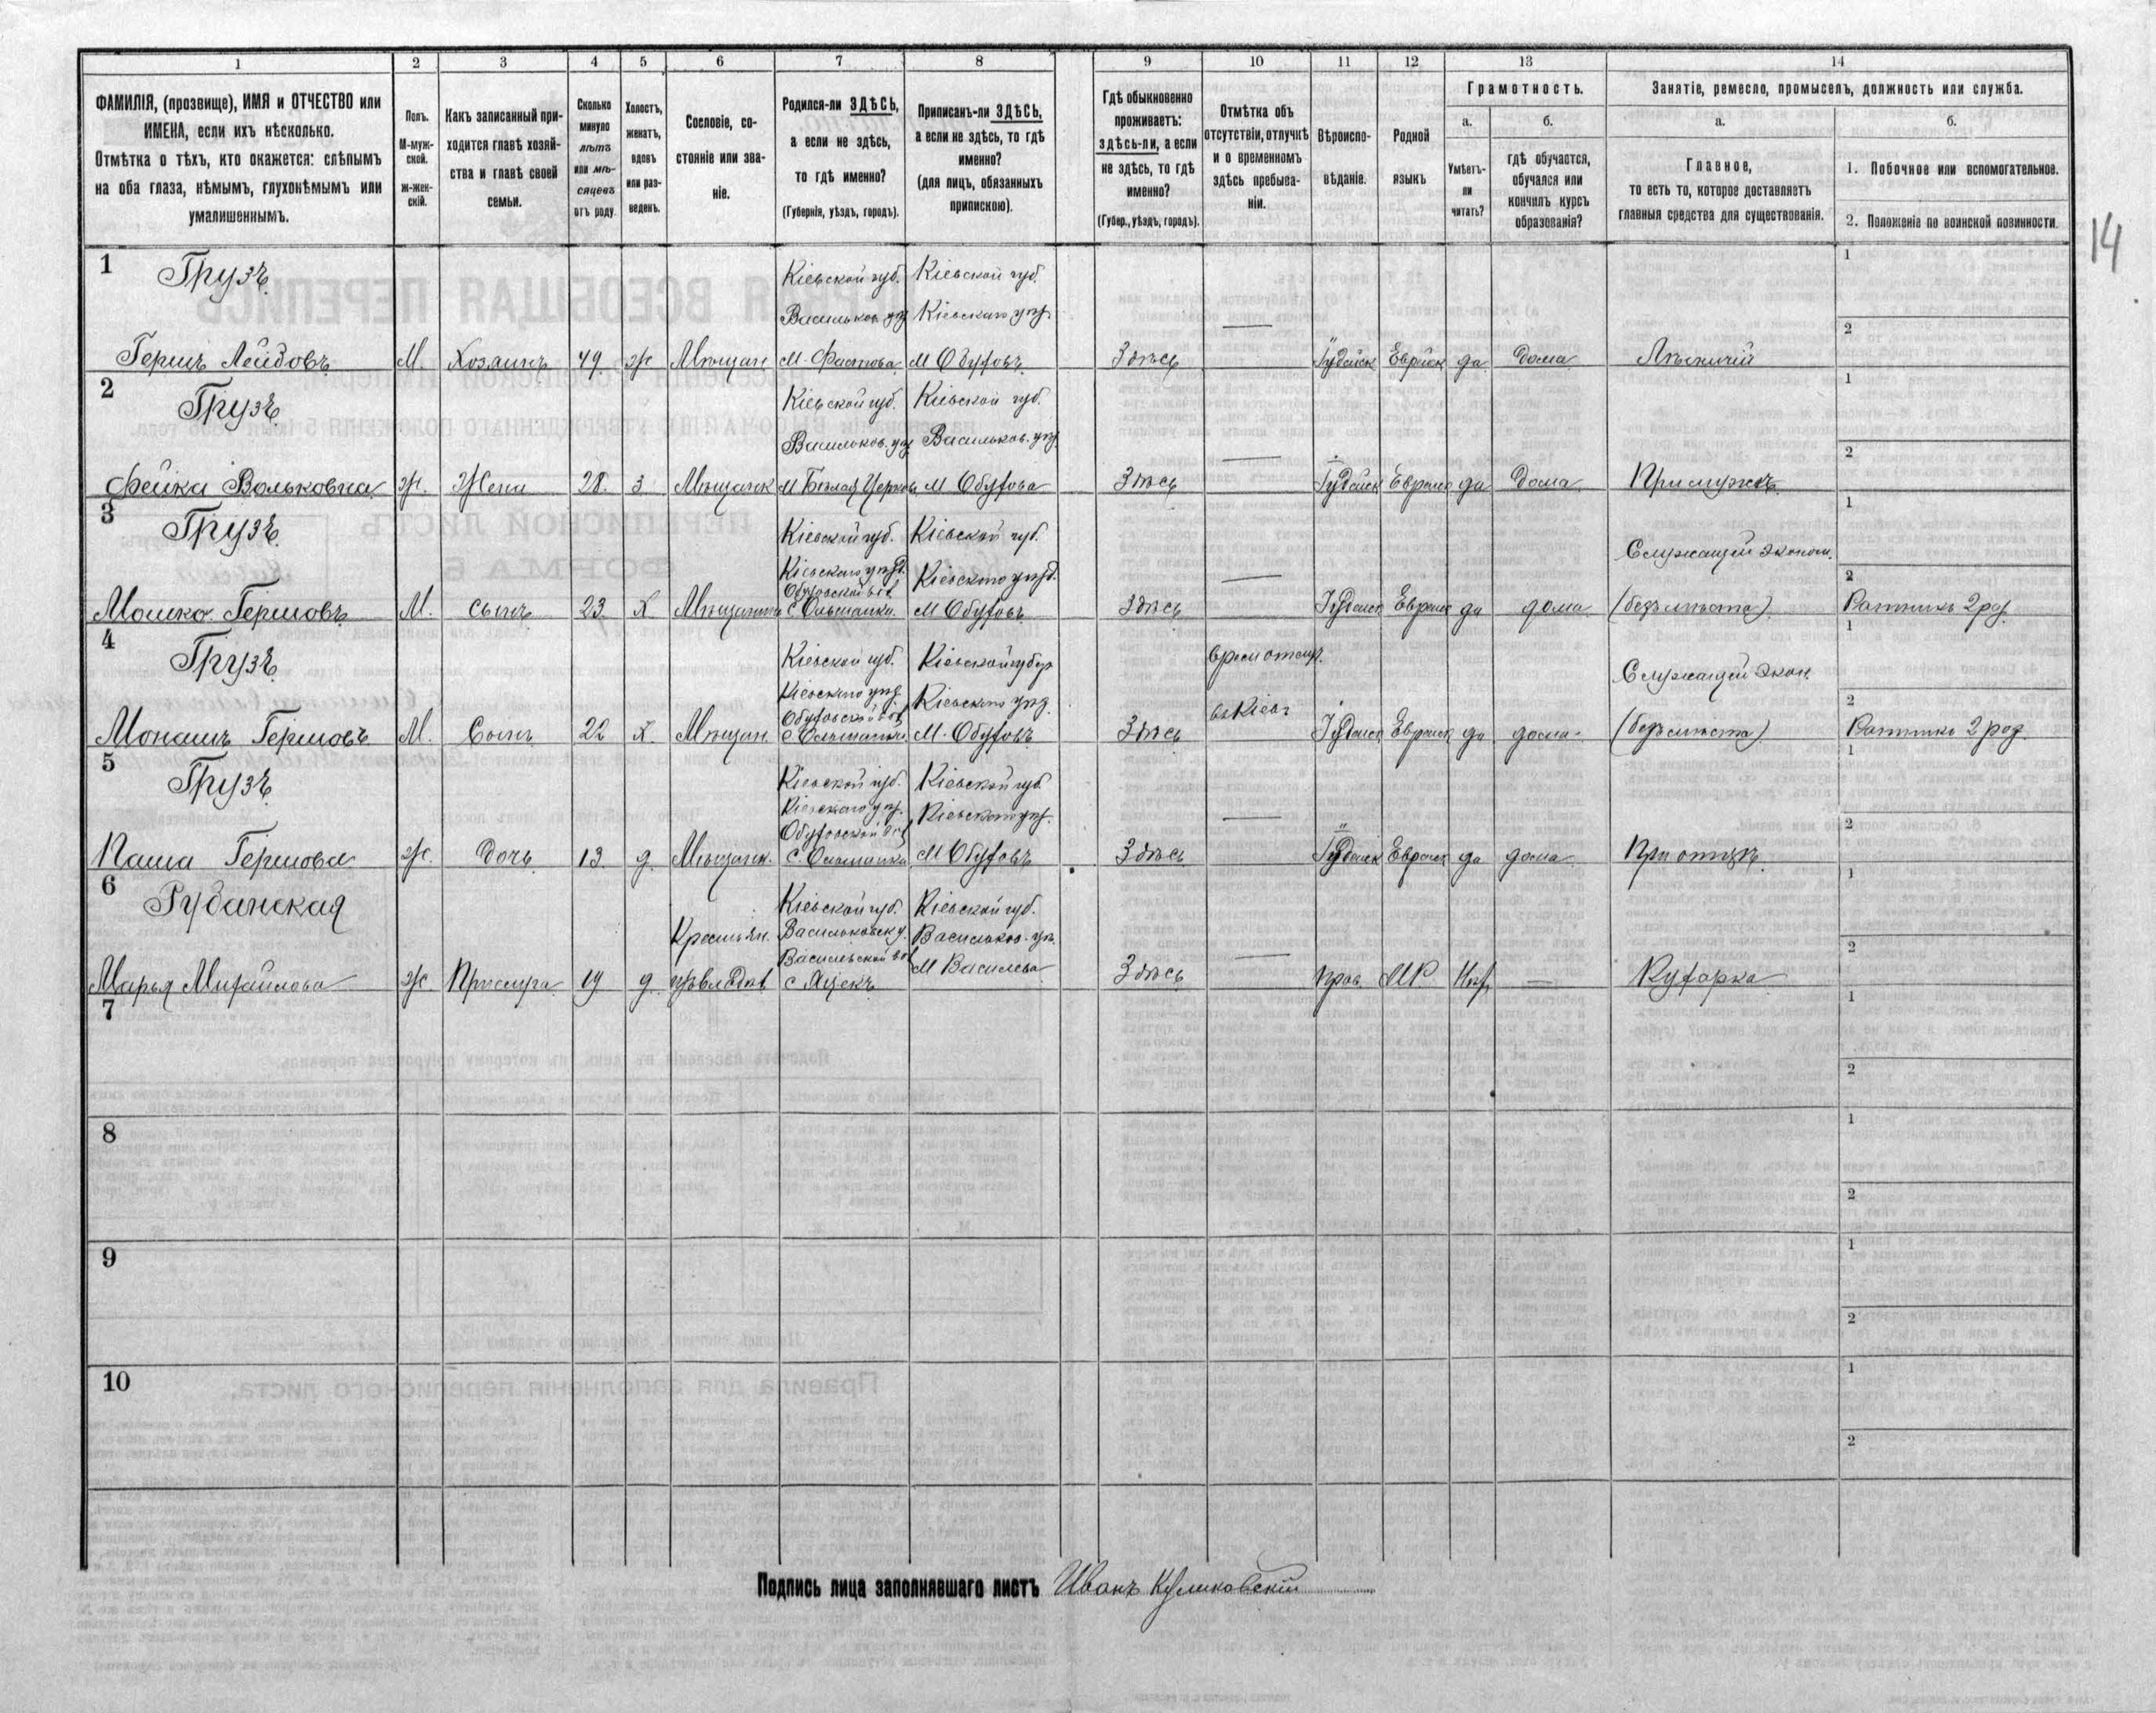 1
2
3
4
5
6
7
8
9
10
11
12
13
14
ФАМИЛІЯ, (прозвище), ИМЯ и ОТЧЕСТВО или
ИМЕНА, если ихъ нѣсколько.
Отмѣтка о тѣхъ, кто окажется: слѣпымъ
на оба глаза, нѣмымъ, глухонѣмымъ или
умалишеннымъ.
Полъ.
М-муж-
ской.
Ж-жен-
скій.
Какъ записанный при-
ходится главѣ хозяй-
ства и главѣ своей
семьи.
Сколько
минуло
лѣтъ
или мѣ-
сяцевъ
отъ роду.
Холостъ,
женатъ,
вдовъ
или раз-
веденъ.
Сословіе, со-
стояніе или зва-
ніе.
Родился-ли ЗДѢСЬ,
а если не здѣсь,
то гдѣ именно?
(Губернія, уѣздъ, городъ).
Приписанъ-ли ЗДѢСЬ,
а если не здѣсь, то гдѣ
именно?
(для лицъ, обязанныхъ
припискою).
Гдѣ обыкновенно
проживаетъ:
здѣсь-ли, а если
не здѣсь, то гдѣ
именно?
(Губер., уѣздъ, городъ).
Отмѣтка объ
отсутствіи, отлучкѣ
и о временномъ
здѣсь пребыва-
ніи.
Вѣроиспо-
вѣданіе.
Родной
языкъ
Грамотность.
а.
Умѣетъ-
ли
читать?
б.
гдѣ обучается,
обучался или
кончилъ курсъ
образованія?
Занятіе, ремесло, промыселъ, должность или служба.
а.
Главное,
то есть то, которое доставляетъ
главныя средства для существованія.
б.
1. Побочное или вспомогательное.
2. Положеніе по воинской повинности.
14
1
Грузъ
Кіевской губ. Кіевской губ.
Васильков. уѣз. Кіевскаго уѣз.
1
2
Гершъ Лейбовъ М. Хозяинъ 49 ж Мѣщан. М. Фастова М Обуховъ Здѣсь — Іудейск Еврейск да дома Лѣсничий
2
Грузъ
Кіевской губ. Кіевской губ.
Васильков. уѣз. Васильков. уѣз.
1
2
Фейка Вольковна ж. Жена 28. з Мѣщанк М Бѣлая Церковь М Обухова Здѣсь — Іудейск Еврейск да дома При мужѣ
3
Грузъ
Кіевской губ. Кіевской губ.
Кіевскаго уѣзд. Кіевскаго уѣзд.
Обуховской вол
Служащій эконом.
1
2
Мошко Гершовъ М. сынъ 23. Х Мѣщанинъ с Ольшанка М Обуховъ Здѣсь — Іудейск Еврейск да дома (безъ мѣста) Ратникъ 2 раз.
4
Грузъ
Кіевской губ. Кіевской губер
Кіевскаго уѣзд. Кіевскаго уѣзд.
Обуховской вол
врем отлуч.
въ Кіевѣ
Служащій экон.
1
2
Монашъ Гершовъ М. Сынъ 22 Х. Мѣщан. с Ольшанка М. Обуховъ Здѣсь Іудейск Еврейск да дома (безъ мѣста) Ратникъ 2 раз.
5
Грузъ
Кіевской губ. Кіевской губ
Кіевскаго уѣз. Кіевскаго уѣз.
Обуховской вол
1
2
Паша Гершова ж. Дочь 13. д. Мѣщанк. с Ольшанка М Обуховъ Здѣсь — Іудейск Еврейск да дома При отцѣ
6
Рубанская
Кіевской губ. Кіевской губ.
Крестьян. Васильковск у. Васильков. уѣ.
Васильевской вол
1
2
Марья Михайлова ж Прислуга 19 д с Яцекъ М Василева Здѣсь — прав. МР. Нѣт — Кухарка
7
1
2
8
1
2
9
1
2
10
1
2
Подпись лица заполнявшаго листъ Иванъ Куликовскій